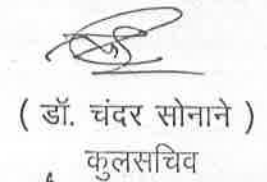 ( डॉ. चंदर सोनाने )
कुलसचिव